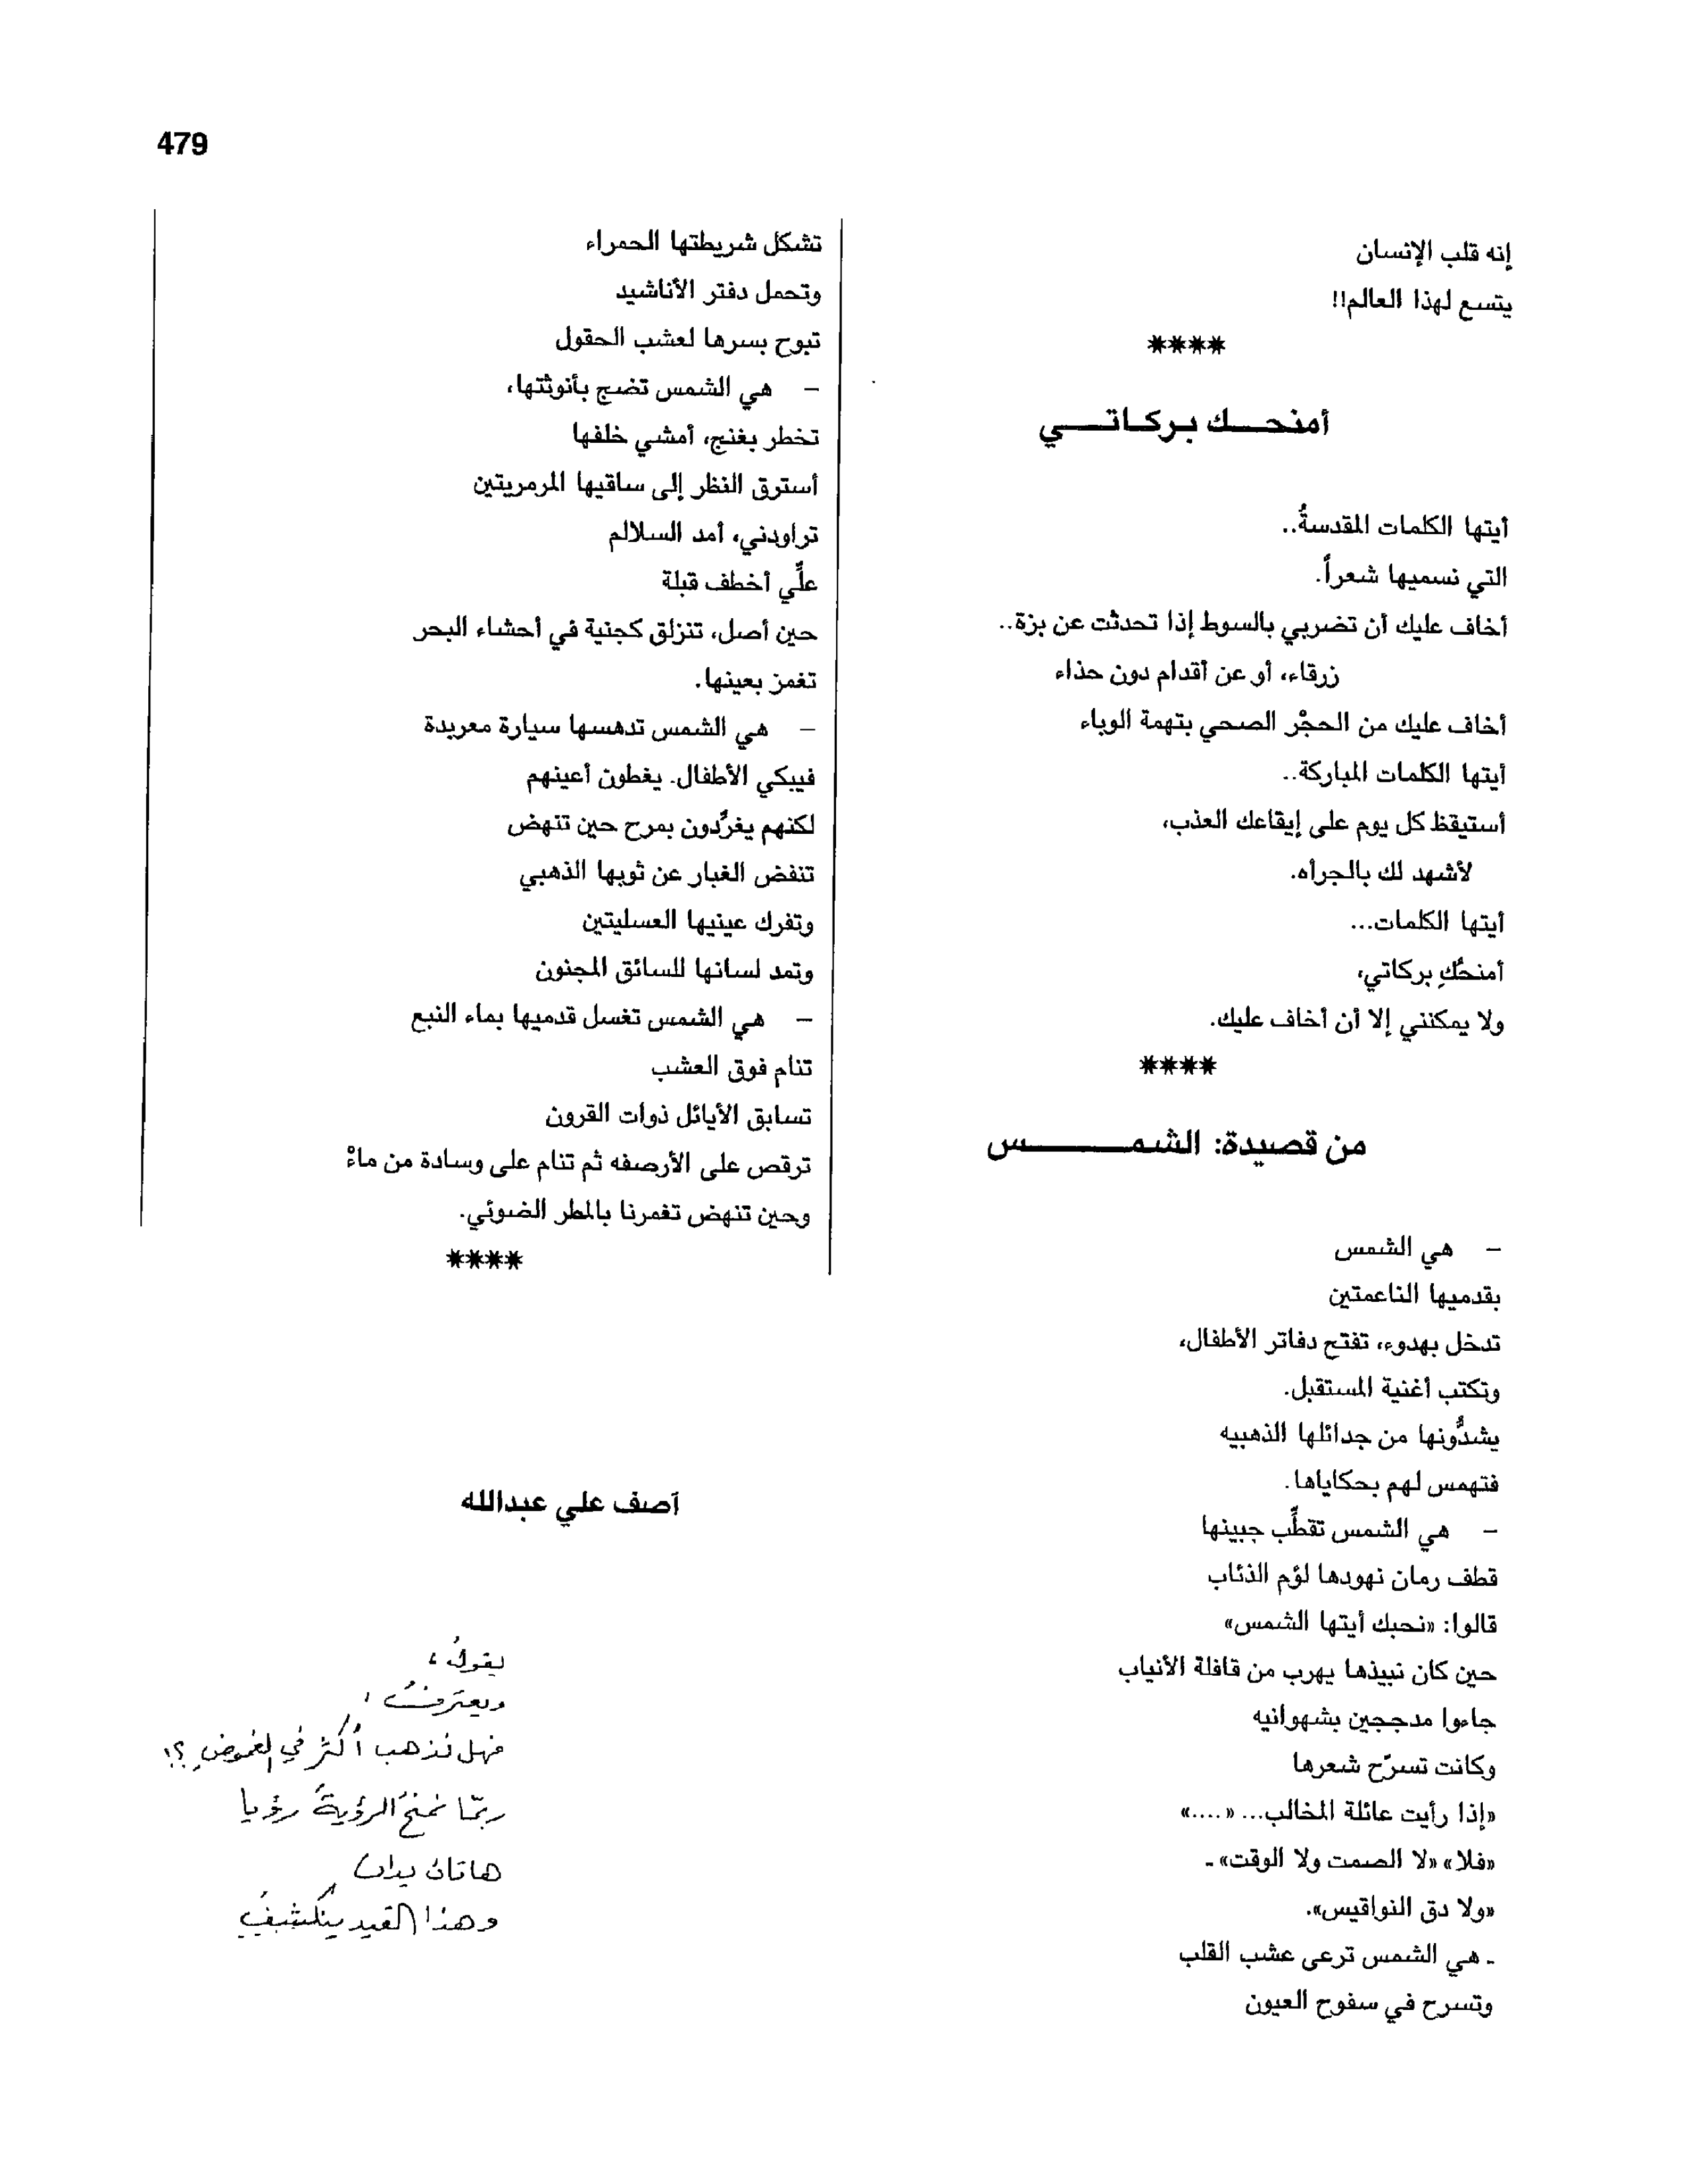 479
إنه قلب الإنسان
يتسع لهذا العالم!!
****
أمنحـــك بـركـاتـــي
أيتها الكلمات المقدسةُ..
التي نسميها شعراً.
أخاف عليك أن تضربي بالسوط إذا تحدثت عن بزة..
زرقاء، أو عن أقدام دون حذاء
أخاف عليك من الحجْر الصحي بتهمة الوباء
أيتها الكلمات المباركة..
أستيقظ كل يوم على إيقاعك العذب،
لأشهد لك بالجرأه.
أيتها الكلمات...
أمنحُكِ بركاتي،
ولا يمكنني إلا أن أخاف عليك.
****
من قصيدة: الشمــــــس
– هي الشمس
بقدميها الناعمتين
تدخل بهدوء، تفتح دفاتر الأطفال،
وتكتب أغنية المستقبل.
يشدُّونها من جدائلها الذهبيه
فتهمس لهم بحكاياها.
– هي الشمس تقطِّب جبينها
قطف رمان نهودها لؤم الذئاب
قالوا: «نحبك أيتها الشمس»
حين كان نبيذها يهرب من قافلة الأنياب
جاءوا مدججين بشهوانيه
وكانت تسرّح شعرها
«إذا رأيت عائلة المخالب... «....»
«فلا» «لا الصمت ولا الوقت» ـ
«ولا دق النواقيس».
ـ هي الشمس ترعى عشب القلب
وتسرح في سفوح العيون
تشكل شريطتها الحمراء
وتحمل دفتر الأناشيد
تبوح بسرها لعشب الحقول
– هي الشمس تضج بأنوثتها،
تخطر بغنج، أمشي خلفها
أسترق النظر إلى ساقيها المرمريتين
تراودني، أمد السلالم
علِّي أخطف قبلة
حين أصل، تنزلق كجنية في أحشاء البحر
تغمز بعينها.
– هي الشمس تدهسها سيارة معربدة
فيبكي الأطفال. يغطون أعينهم
لكنهم يغرِّدون بمرح حين تنهض
تنفض الغبار عن ثوبها الذهبي
وتفرك عينيها العسليتين
وتمد لسانها للسائق المجنون
– هي الشمس تغسل قدميها بماء النبع
تنام فوق العشب
تسابق الأيائل ذوات القرون
ترقص على الأرصفه ثم تنام على وسادة من ماءْ
وحين تنهض تغمرنا بالمطر الضوئي.
****
آصف علي عبدالله
يقولُ،
ويعترفُ،
فهل نذهب أكثر في الغموضِ؟!
ربّما نمنحُ الرؤيةَ رؤيا
هاتان يدان
وهذا القيد ينكشفُ